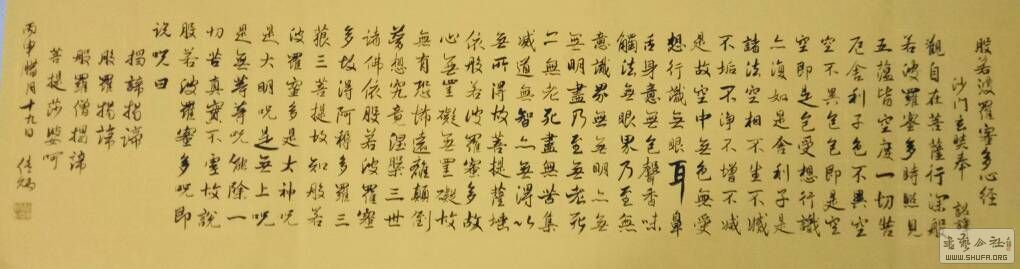 般若波羅蜜多心經
沙門玄奘奉 詔譯
觀自在菩薩行深般
若波羅蜜多時照見
五蘊皆空度一切苦
厄舍利子色不異空
空不異色色即是空
空即是色受想行識
亦復如是舍利子是
諸法空相不生不滅
不垢不淨不增不減
是故空中無色無受
想行識無眼耳鼻
舌身意無色聲香味
觸法無眼界乃至無
意識界無無明亦無
無明盡乃至無老死
亦無老死盡無苦集
滅道無智亦無得以
無所得故菩提薩埵
依般若波羅蜜多故
心無罣礙無罣礙故
無有恐怖遠離顛倒
夢想究竟涅槃三世
諸佛依般若波羅蜜
多故得阿耨多羅三
藐三菩提故知般若
波羅蜜多是大神咒
是大明咒是無上咒
是無等等咒能除一
切苦真實不虛故說
般若波羅蜜多咒即
說咒曰
揭諦揭諦
般羅揭諦
般羅僧揭諦
菩提莎婆呵
丙申臘月十九日
書藝公社
WWW.SHUFA.ORG